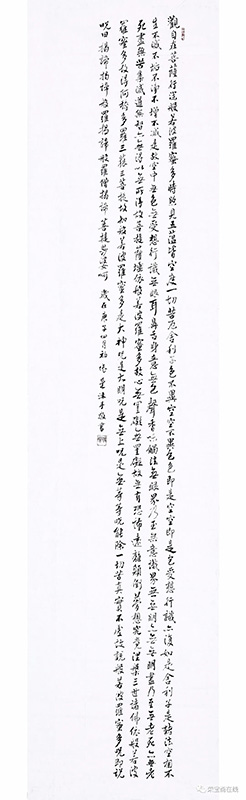 觀自在菩薩行深般若波羅蜜多時照見五蘊皆空度一切苦厄舍利子色不異空空不異色色即是空空即是色受想行識亦復如是舍利子是諸法空相不
生不滅不垢不淨不增不減是故空中無色無受想行識無眼耳鼻舌身意無色聲香味觸法無眼界乃至無意識界無無明亦無無明盡乃至無老死亦無老
死盡無苦集滅道無智亦無得以無所得故菩提薩埵依般若波羅蜜多故心無罣礙無罣礙故無有恐怖遠離顛倒夢想究竟涅槃三世諸佛依般若波
羅蜜多故得阿耨多羅三藐三菩提故知般若波羅蜜多是大神咒是大明咒是無上咒是無等等咒能除一切苦真實不虛故說般若波羅蜜多咒即說
呪曰揭諦揭諦般羅揭諦般羅僧揭諦菩提莎婆訶歲在庚子四月初沐手敬書